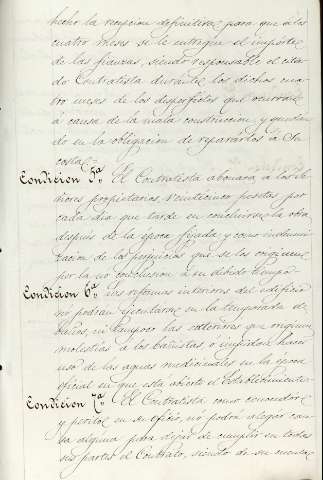 hecho la recepcion definitiva, para que á los
cuatro meses se le entregue el importe
de las fianzas, siendo responsable el cita-
do Contratista durante los dichos cua-
tro meses de los desperfectos que ocurran
á causa de la mala construccion, y quedan-
do en la obligacion de repararlos á su
costa.
Condicion 5ª El Contratista abonará á los Se-
ñores propietarios, veinticinco pesetas por
cada dia que tarde en concluirse la obra
despues de la época fijada, y como indemni-
zacion de los perjuicios que se les originen
por la no conclusion á su debido tiempo.
Condicion 6ª Las reformas interiores del edificio
no podrán ejecutarse en la temporada de
baños, ni tampoco las exteriores que originen
molestias á los bañistas, ó impidan hacer
uso de las aguas medicinales en la época
oficial en que está abierto el Establecimiento.
Condicion 7ª El Contratista como conocedor
y perito en su oficio, no podrá alegar cau-
sa alguna para dejar de cumplir en todas
sus partes el Contrato, siendo de su cuenta